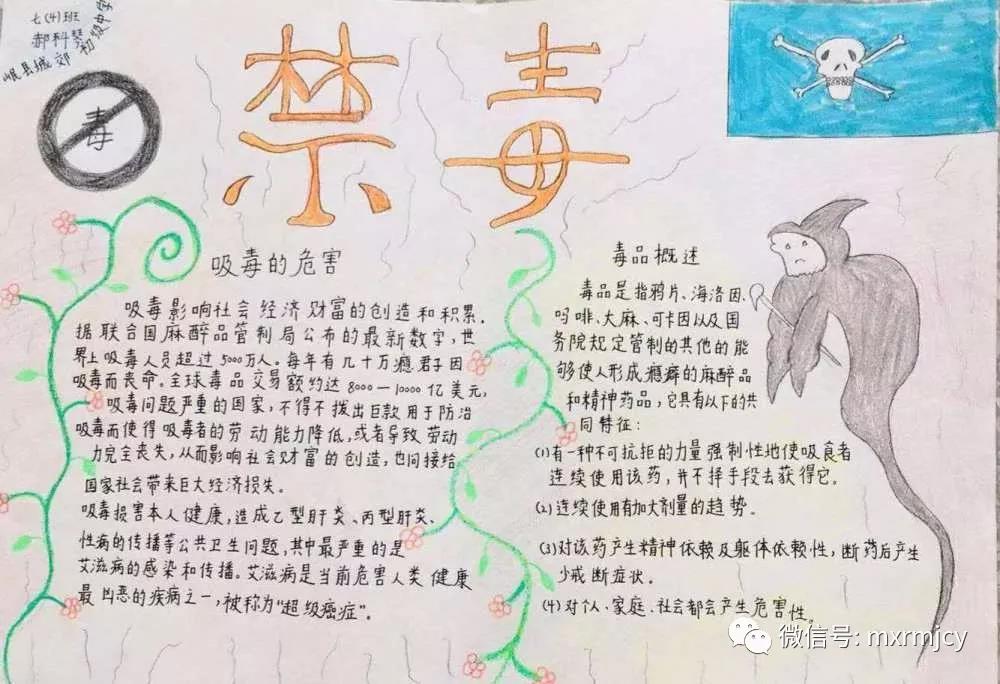 七(4)班
郝科琴
岷县城郊初级中学
毒
禁毒
吸毒的危害
吸毒影响社会经济财富的创造和积累.
据联合国麻醉品管制局公布的最新数字,世
界上吸毒人员超过5000万人。每年有几十万瘾君子因
吸毒而丧命。全球毒品交易额约达8000—10000亿美元,
吸毒问题严重的国家,不得不拨出巨款用于防治
吸毒而使得吸毒者的劳动能力降低,或者导致劳动
力完全丧失,从而影响社会财富的创造,也间接给
国家社会带来巨大经济损失。
吸毒损害本人健康,造成乙型肝炎、丙型肝炎、
性病的传播等公共卫生问题,其中最严重的是
艾滋病的感染和传播。艾滋病是当前危害人类健康
最凶恶的疾病之一,被称为“超级癌症”.
毒品概述
毒品是指鸦片、海洛因、
吗啡、大麻、可卡因以及国
务院规定管制的其他的能
够使人形成瘾癖的麻醉品
和精神药品,它具有以下的共
同特征:
(1)有一种不可抗拒的力量强制性地使吸食者
连续使用该药,并不择手段去获得它。
(2)连续使用有加大剂量的趋势.
(3)对该药产生精神依赖及躯体依赖性,断药后产生
少戒断症状.
(4)对个人、家庭、社会都会产生危害性。
微信号: mxrmjcy